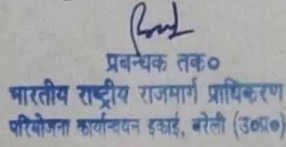 प्रबन्धक तक०
भारतीय राष्ट्रीय राजमार्ग प्राधिकरण
परियोजना कार्यान्वयन इकाई, बरेली (उ०प्र०)